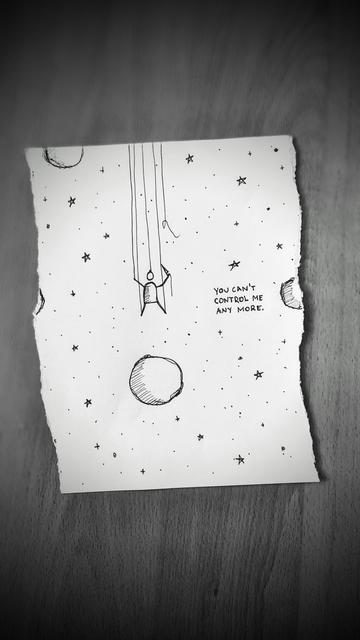 YOU CAN'T
CONTROL ME
ANY MORE.